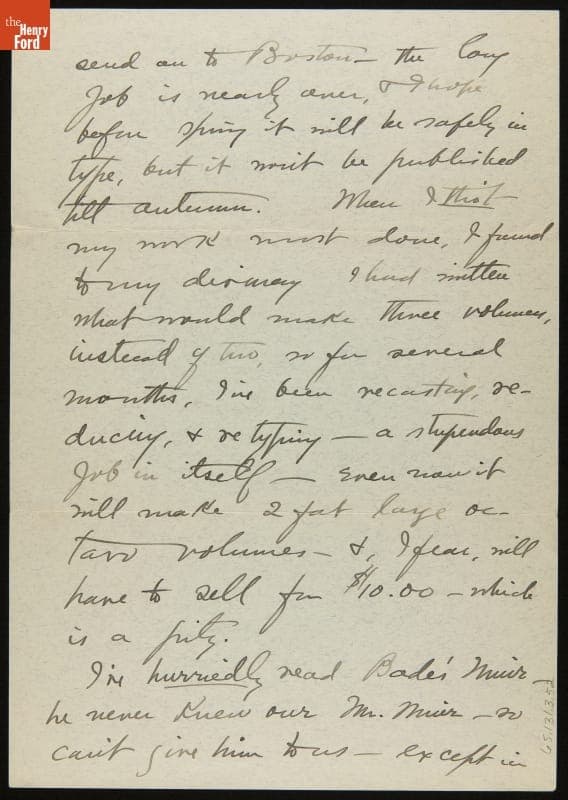 the
Henry
Ford
send on to Boston – the long
job is nearly over, & I hope
before spring it will be safely in
type, but it won't be published
till autumn. When I thot
my work most done, I found
to my dismay I had written
what would make three volumes,
instead of two, so for several
months, I've been recasting, re-
ducing, & retyping – a stupendous
job in itself – even now it
will make 2 fat large oc-
tavo volumes – &, I fear, will
have to sell for $10.00 – which
is a pity.
I've hurriedly read Bade's Muir –
he never knew our Mr. Muir – so
can't give him to us – except in
65.131.3.52